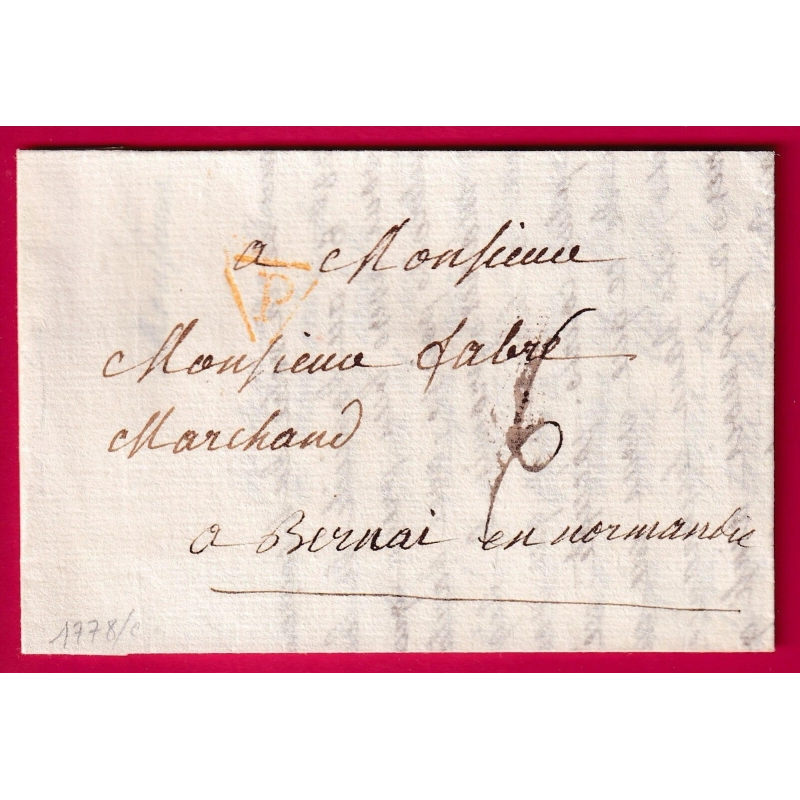 a Monsieur
P
Monsieur fabre
Marchand
6
a Bernai en normandie
1778/c